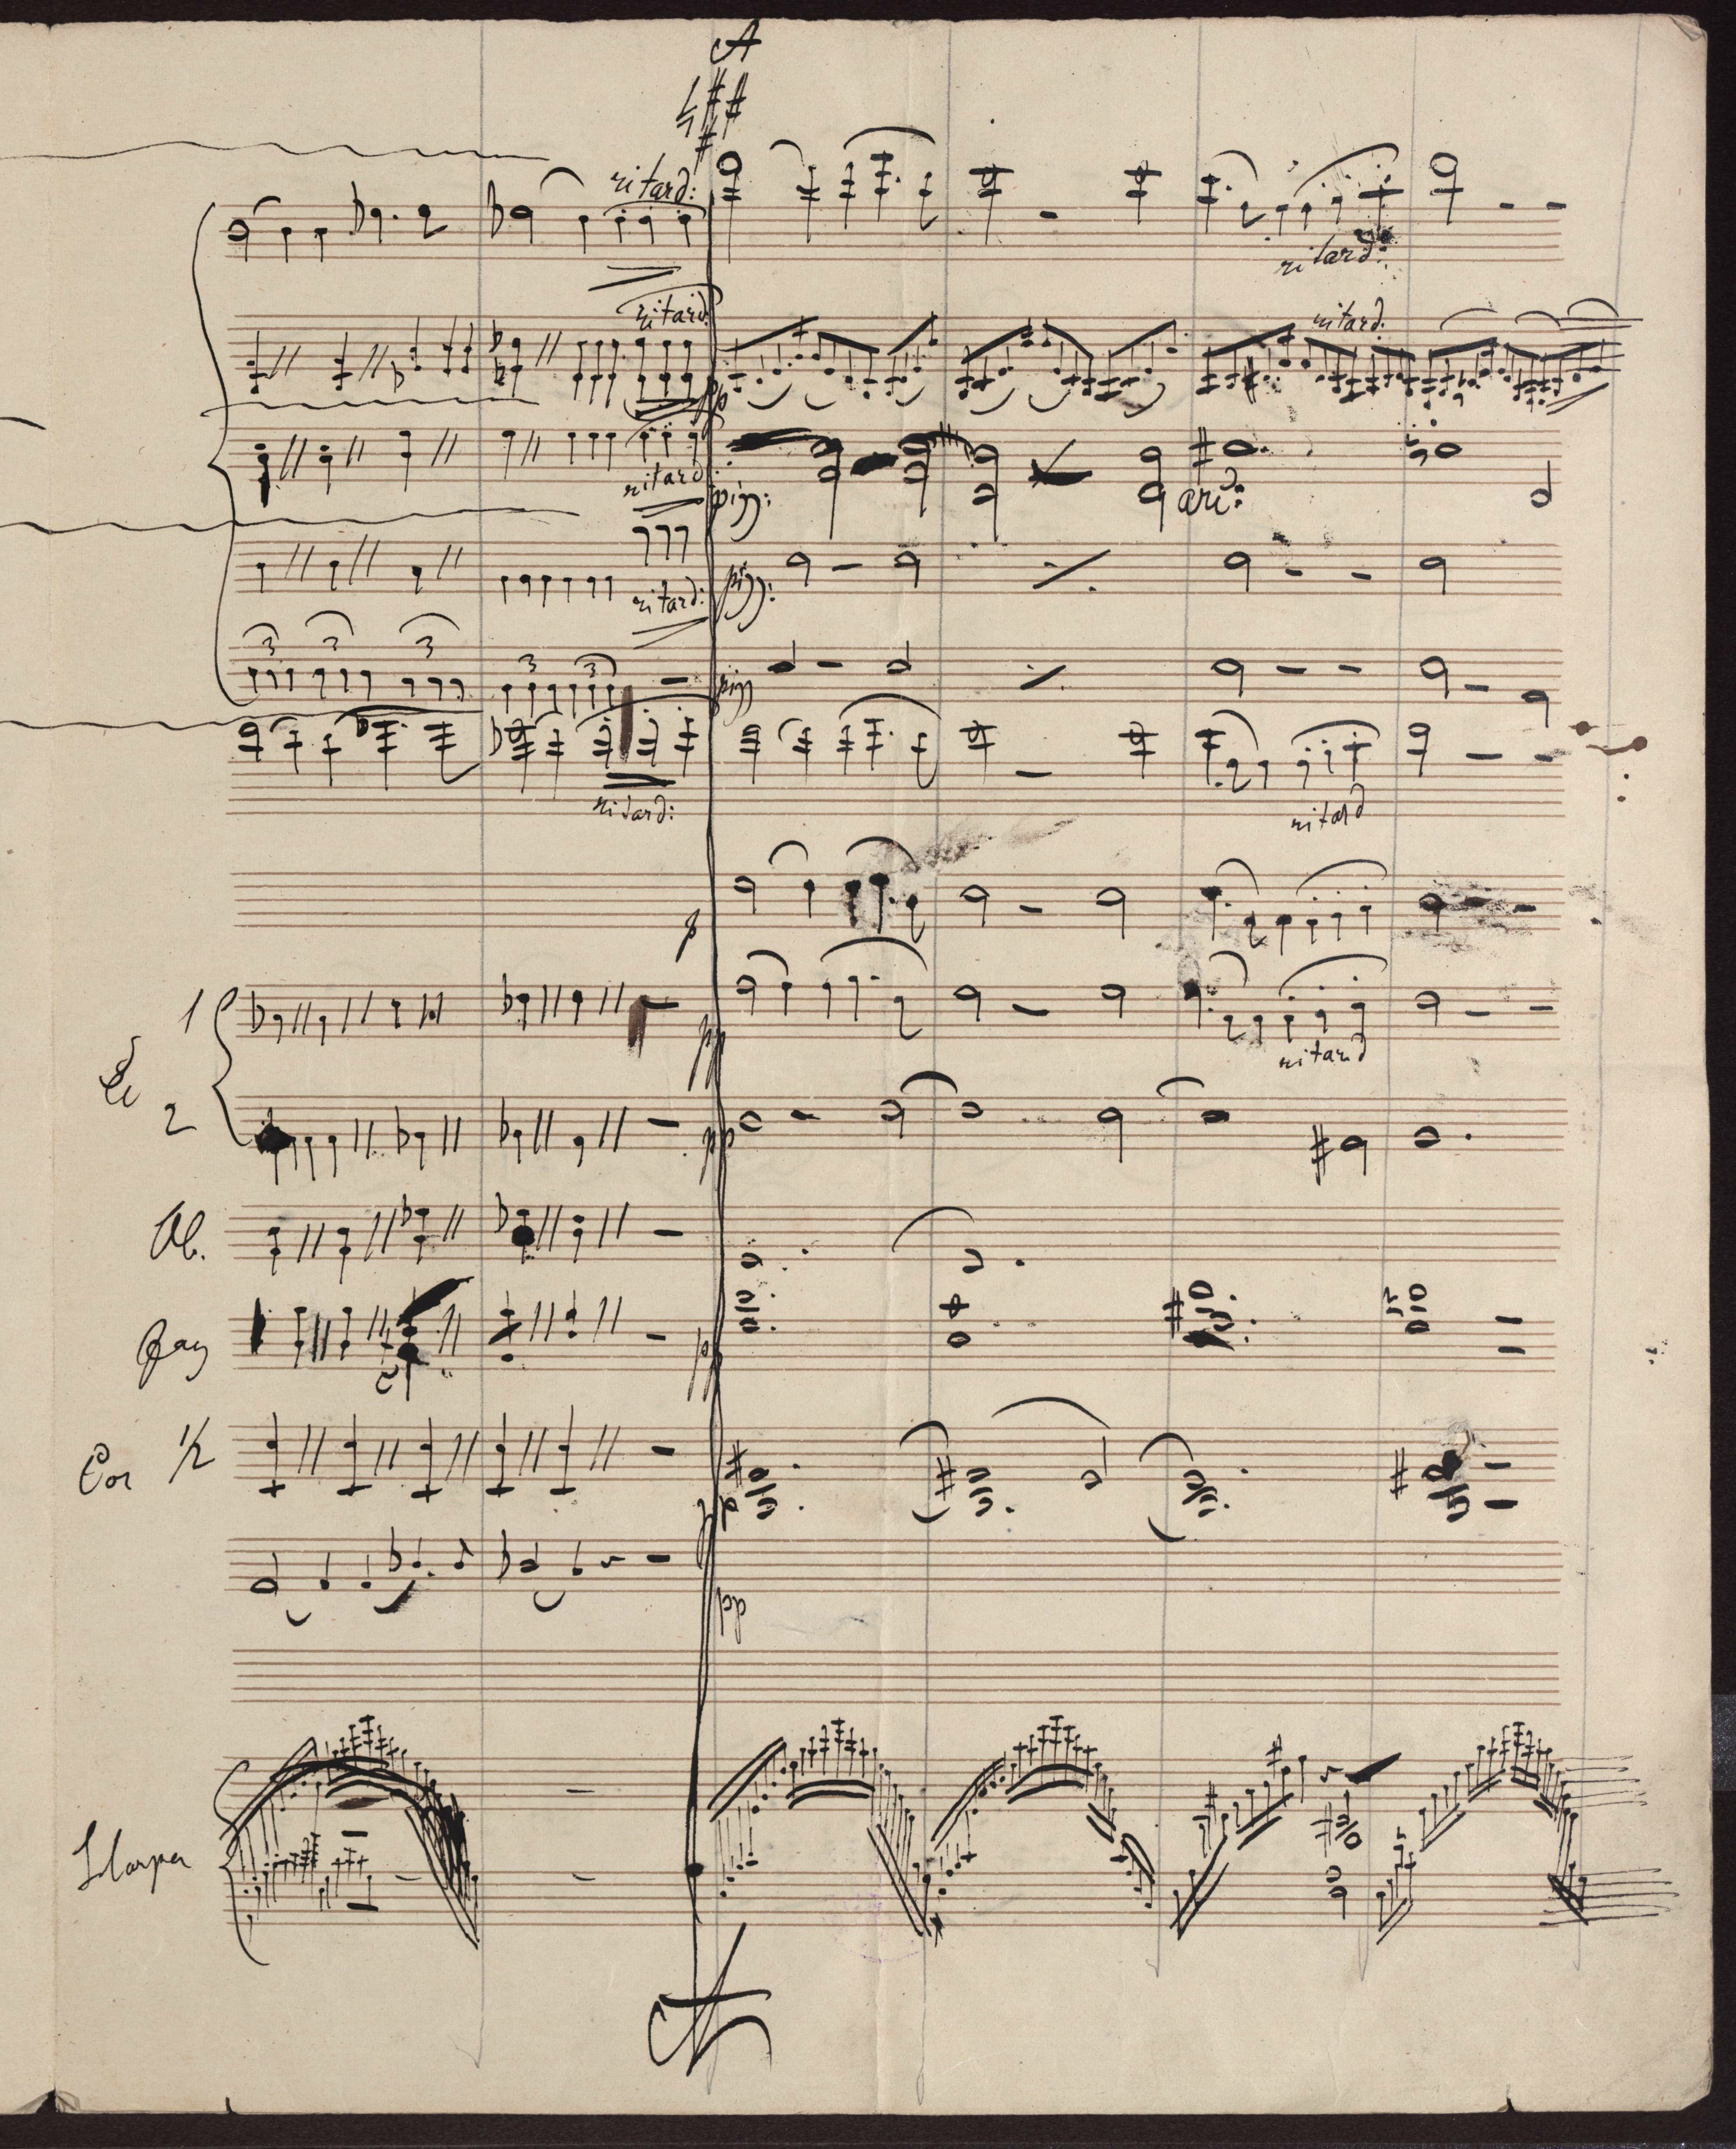 A
ritard:
ritard:
ritard:
ritard.
pp
ritard:
pizz:
arc:
ritard:
pizz:
3 3 3
3 3
pizz
ritard:
ritard
p
1
pp
ritard
2
pp
Ob.
Fag
pp
Cor 1/2
pp
pp
Harpa
A